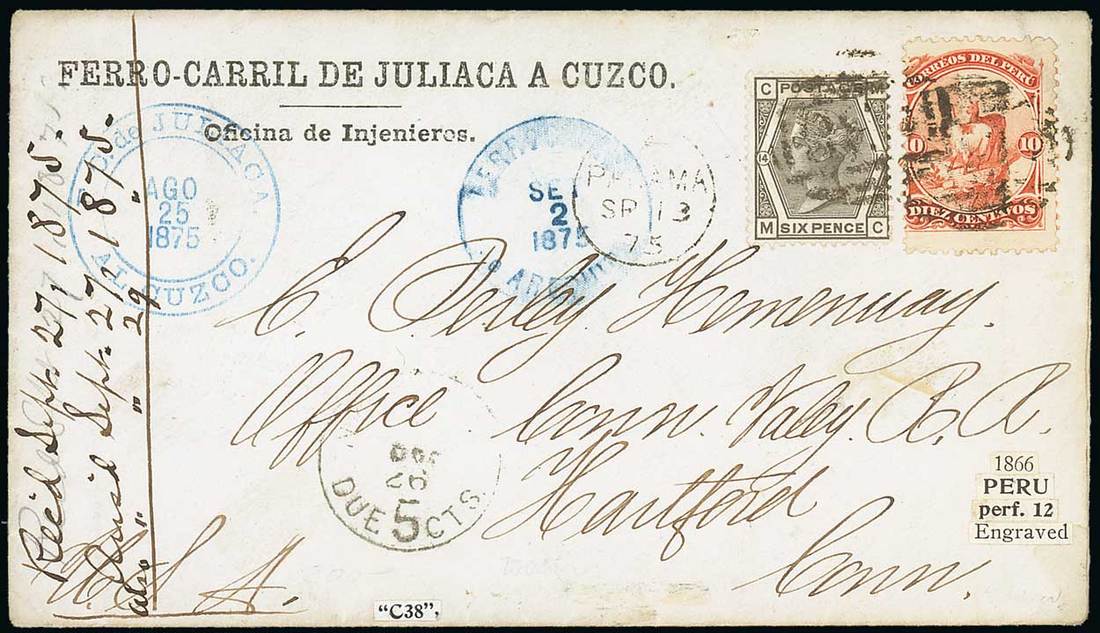 FERRO-CARRIL DE JULIACA A CUZCO.
Oficina de Injenieros.
de JULIACA.
AGO
25
1875
AL CUZCO.
SET
2
1875
PANAMA
SP 13
75
C POSTAGE M
14
SIX PENCE
M C
CORREOS DEL PERU
10 10
DIEZ CENTAVOS
E. Perley Hemenway.
Office Conn. Valley R. R.
Hartford
Conn.
U. S. A.
Rec'd Sept. 27, 1875.
Ansd Sept. 27, 1875.
also " 29 "
26
DUE 5 CTS.
1866
PERU
perf. 12
Engraved
"C38",